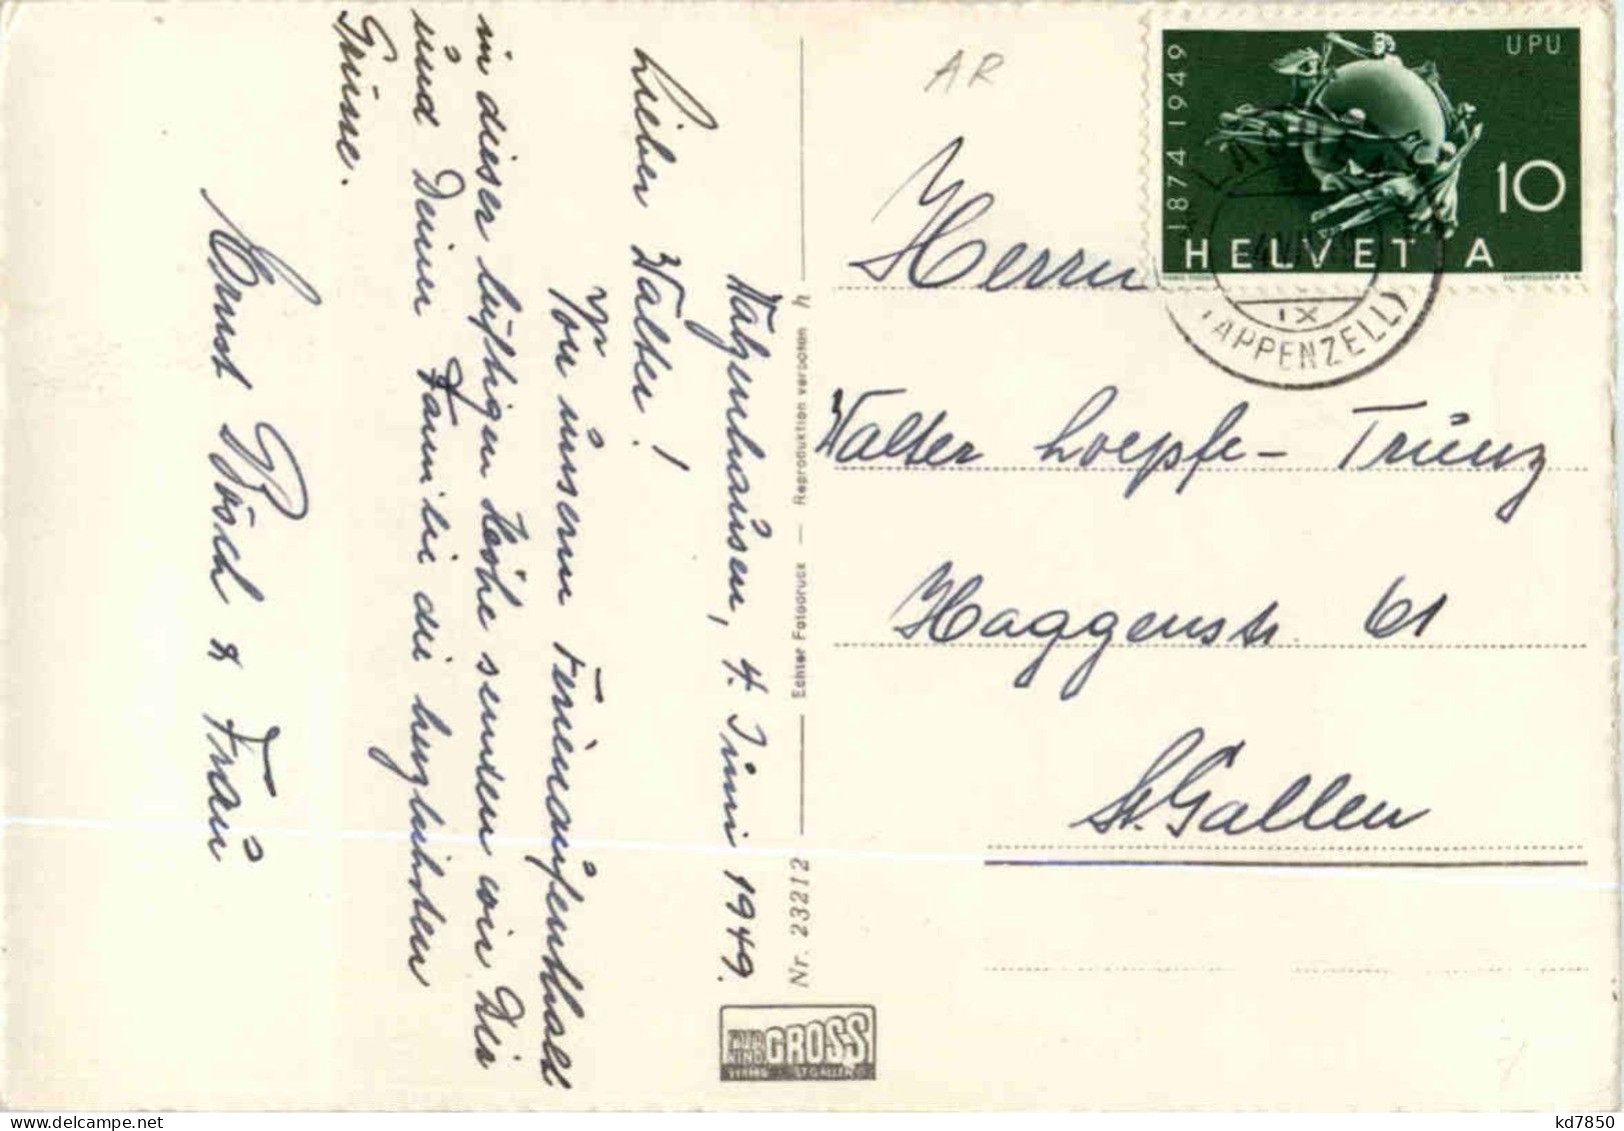 Walzenhausen, 4. Juni 1949.
Lieber Walter!
Von unserm Ferienaufenthalt
in dieser luftigen Höhe senden wir Dir
und Deiner Familie die herzlichsten
Grüsse.
Ernst Bösch & Frau
Nr. 23212 — Echter Fotodruck — Reproduktion verboten h
GROSS
ST. GALLEN
AR
1874 1949
UPU
10
HELVETIA
IX
(APPENZELL)
Herrn
Walter Loepfe-Trünz
Haggenstr. 61
St. Gallen
kd7850